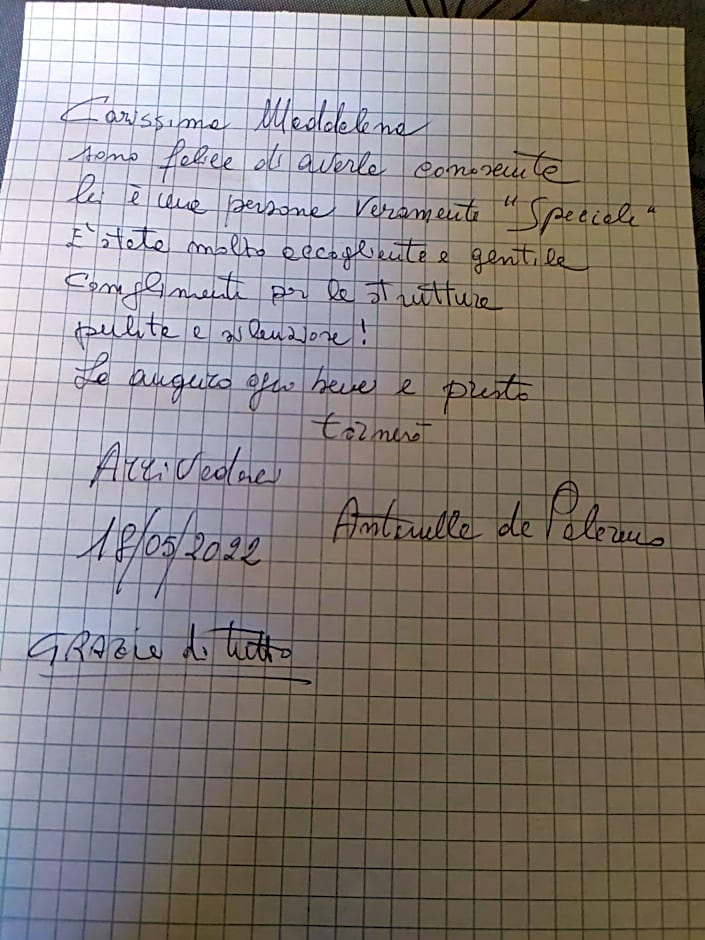 Carissima Maddalena
sono felice di averla conosciuta
lei è una persona veramente "Speciale"
E' stata molto accogliente e gentile
Complimenti per la struttura
pulita e
Le auguro ogni bene e presto
tornerò
Arrivederci
18/05/2022 Antonella da Palermo
GRAZie di tutto